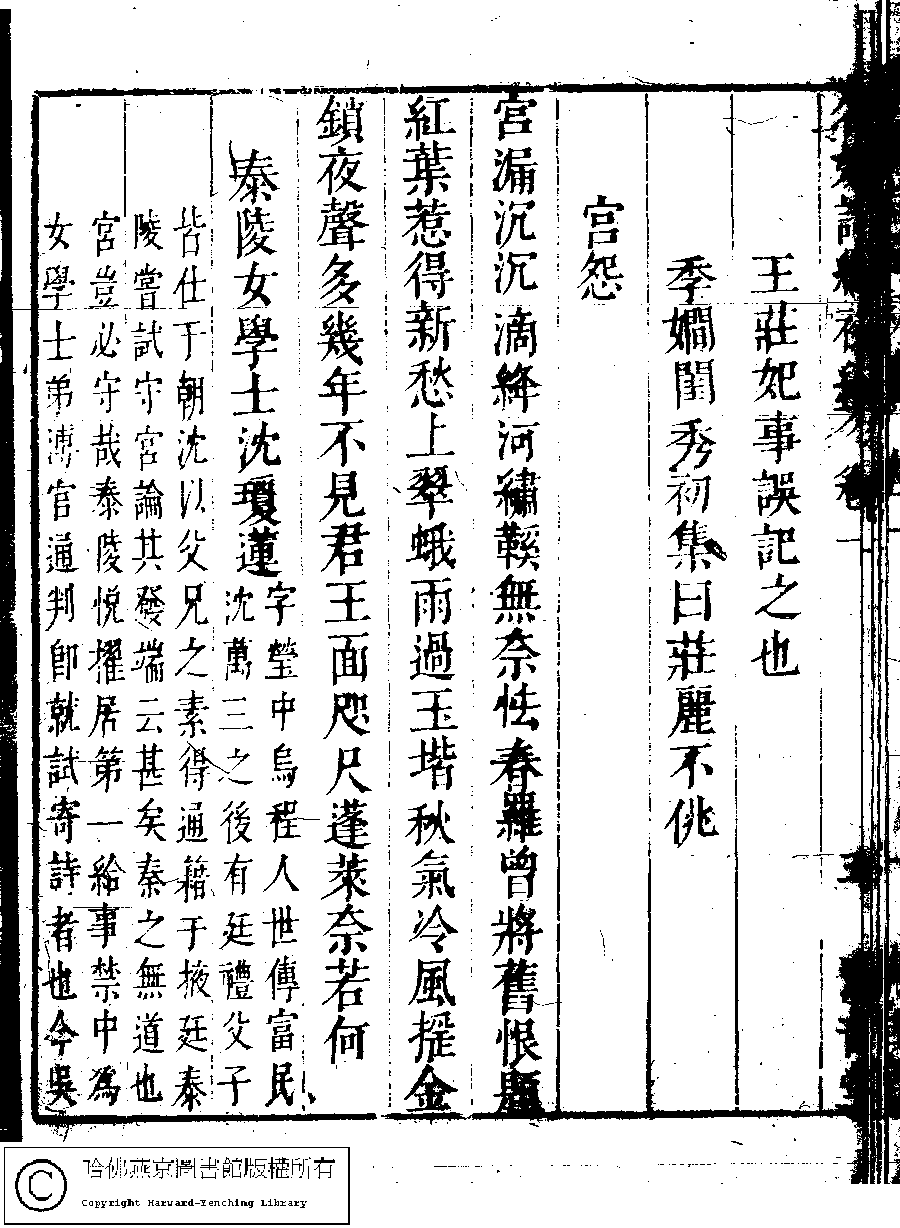 王莊妃事誤記之也
季嫺閨秀初集曰莊麗不佻
宮怨
宮漏沉沉滴絳河繡鞵無奈怯春羅曾將舊恨題
紅葉惹得新愁上翠蛾雨過玉堦秋氣冷風搖金
鎖夜聲多幾年不見君王面咫尺蓬萊奈若何
泰陵女學士沈瓊蓮
字瑩中烏程人世傳富民
沈萬三之後有廷禮父子
皆仕于朝沈以父兄之素得通籍于掖廷泰
陵嘗試守宮論其發端云甚矣秦之無道也
宮豈必守哉泰陵悅擢居第一給事禁中為
女學士弟溥官通判卽就試寄詩者也今吳
哈佛燕京圖書館版權所有
Copyright Harvard-Yenching Library